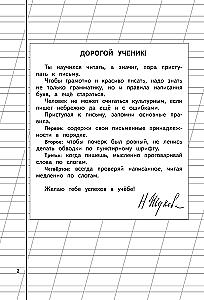 ДОРОГОЙ УЧЕНИК!
Ты научился читать, а значит, пора присту-
пать к письму.
Чтобы грамотно и красиво писать, надо знать
не только грамматику, но и правила написания
букв, а ещё стараться.
Человек не может считаться культурным, если
пишет небрежно да ещё и с ошибками.
Приступая к письму, запомни основные пра-
вила.
Первое: содержи свои письменные принадлеж-
ности в порядке.
Второе: чтобы почерк был ровный, не ленись
делать обводки по пунктирному шрифту.
Третье: когда пишешь, мысленно проговаривай
слова по слогам.
Четвёртое: всегда проверяй написанное, читая
медленно по слогам.
Желаю тебе успехов в учёбе!
Н. Жуков
2